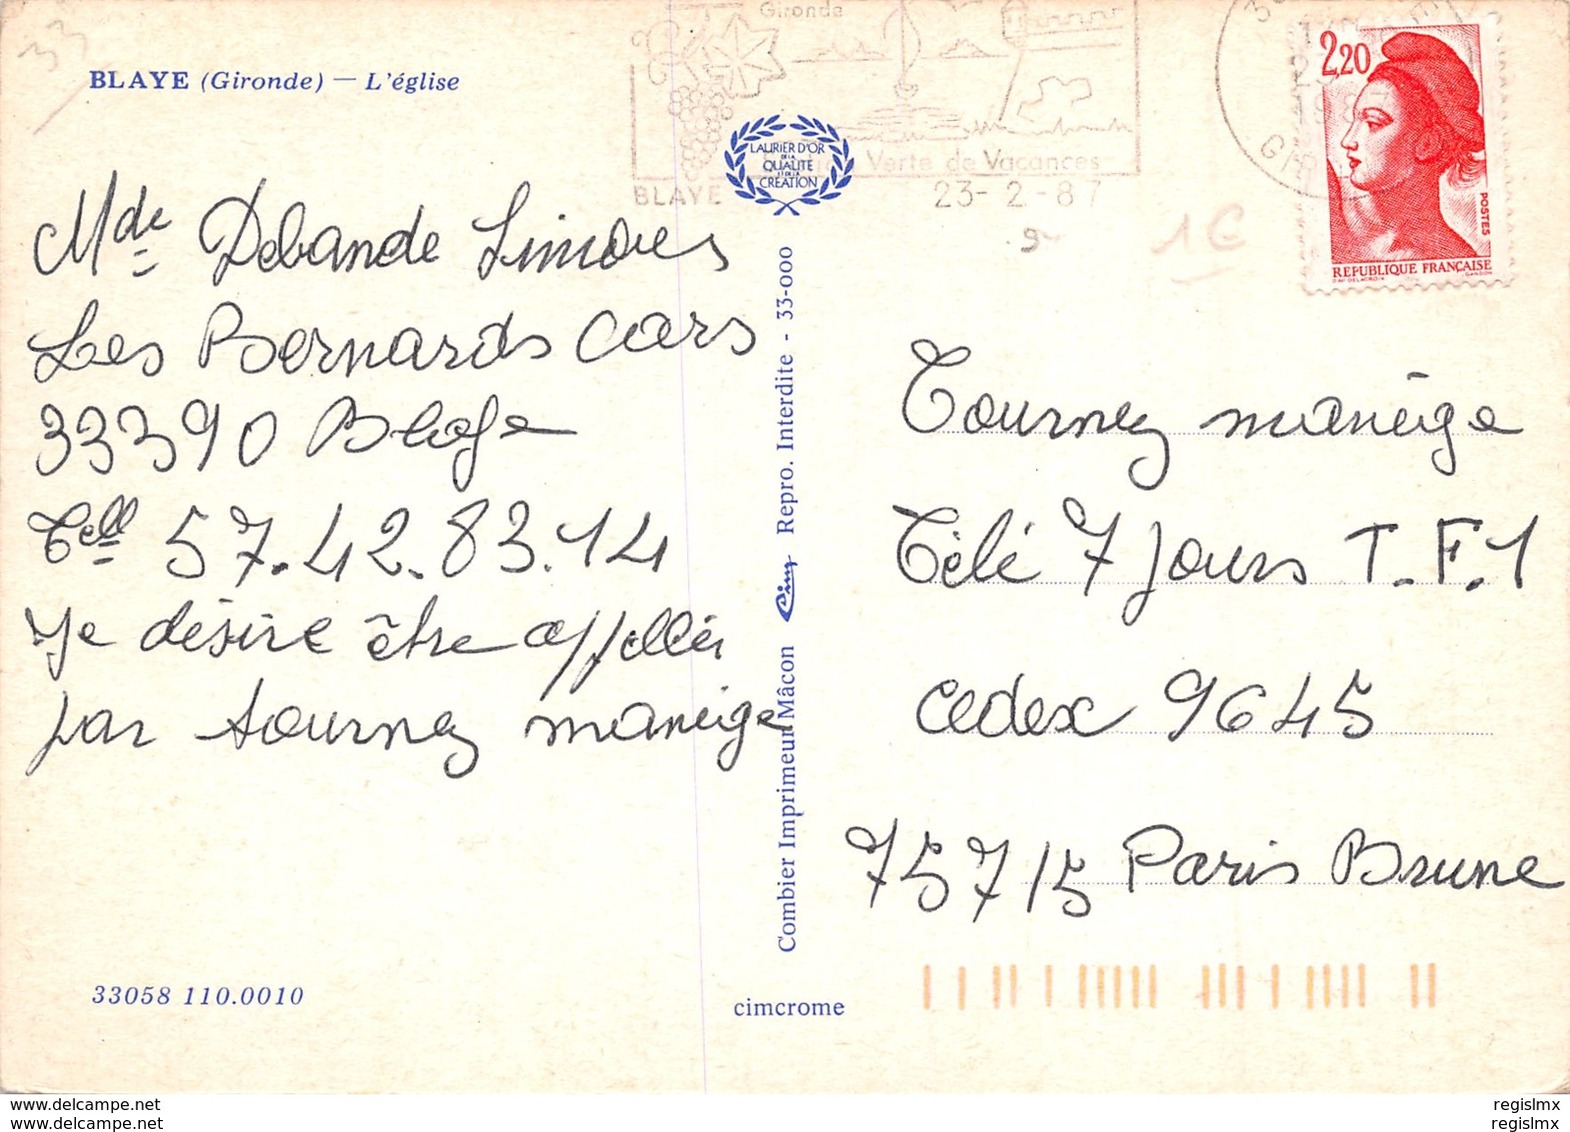 33
BLAYE (Gironde) — L'église
Gironde
Verte de Vacances
BLAYE
23-2-87
LAURIER D'OR
DE LA
QUALITÉ
ET DE LA
CRÉATION
2,20
POSTES
REPUBLIQUE FRANÇAISE
D'AP. DELACROIX
GANDON
1€
Mde Debande
Les Bernards Cars
33390 Blaye
Tell 57.42.83.14
Je désire être appellér
par tournez manèige
Combier Imprimeur Mâcon Cim Repro. Interdite - 33-000
Tournez manèige
Télé 7 Jours T.F.1
Cedex 9645
75715 Paris Brune
33058 110.0010
cimcrome
www.delcampe.com
www.delcampe.com
regislmx
regislmx